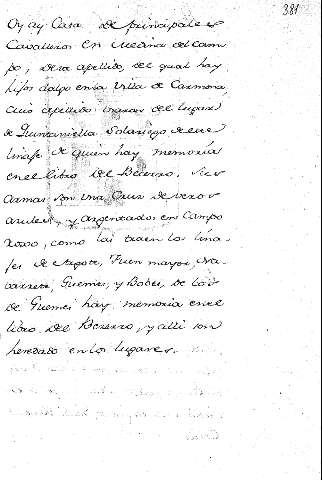 381
Oy ay Casa de principales
Cavalleros en Medina del Cam-
po, desta apellido, del qual hay
hijos dalgo en la Villa de Carmona,
cuio apellido traxon del lugar
de Quintanilla Solariego de este
linaje de quien hay memoria
en el libro del Bezerro, sus
armas son una Cruz de veros
azules, y argentados en Campo
roxo, como las traen los lina-
jes de Agote, Fuen mayor, Na-
barrete, Guemes, y Bobes, de los
de Guemes hay memoria en el
libro del Bezerro, y alli son
heredado en los lugares.